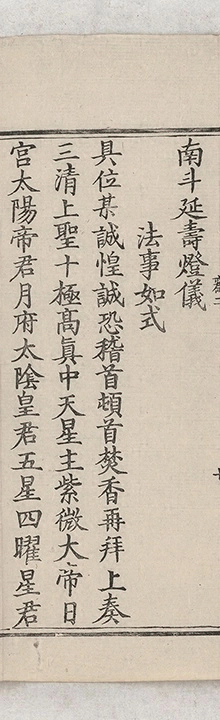 南斗延壽燈儀
法事如式
具位某誠惶誠恐稽首頓首焚香再拜上奏
三清上聖十極髙眞中天星主紫微大帝日
宮太陽帝君月府太陰皇君五星四曜星君